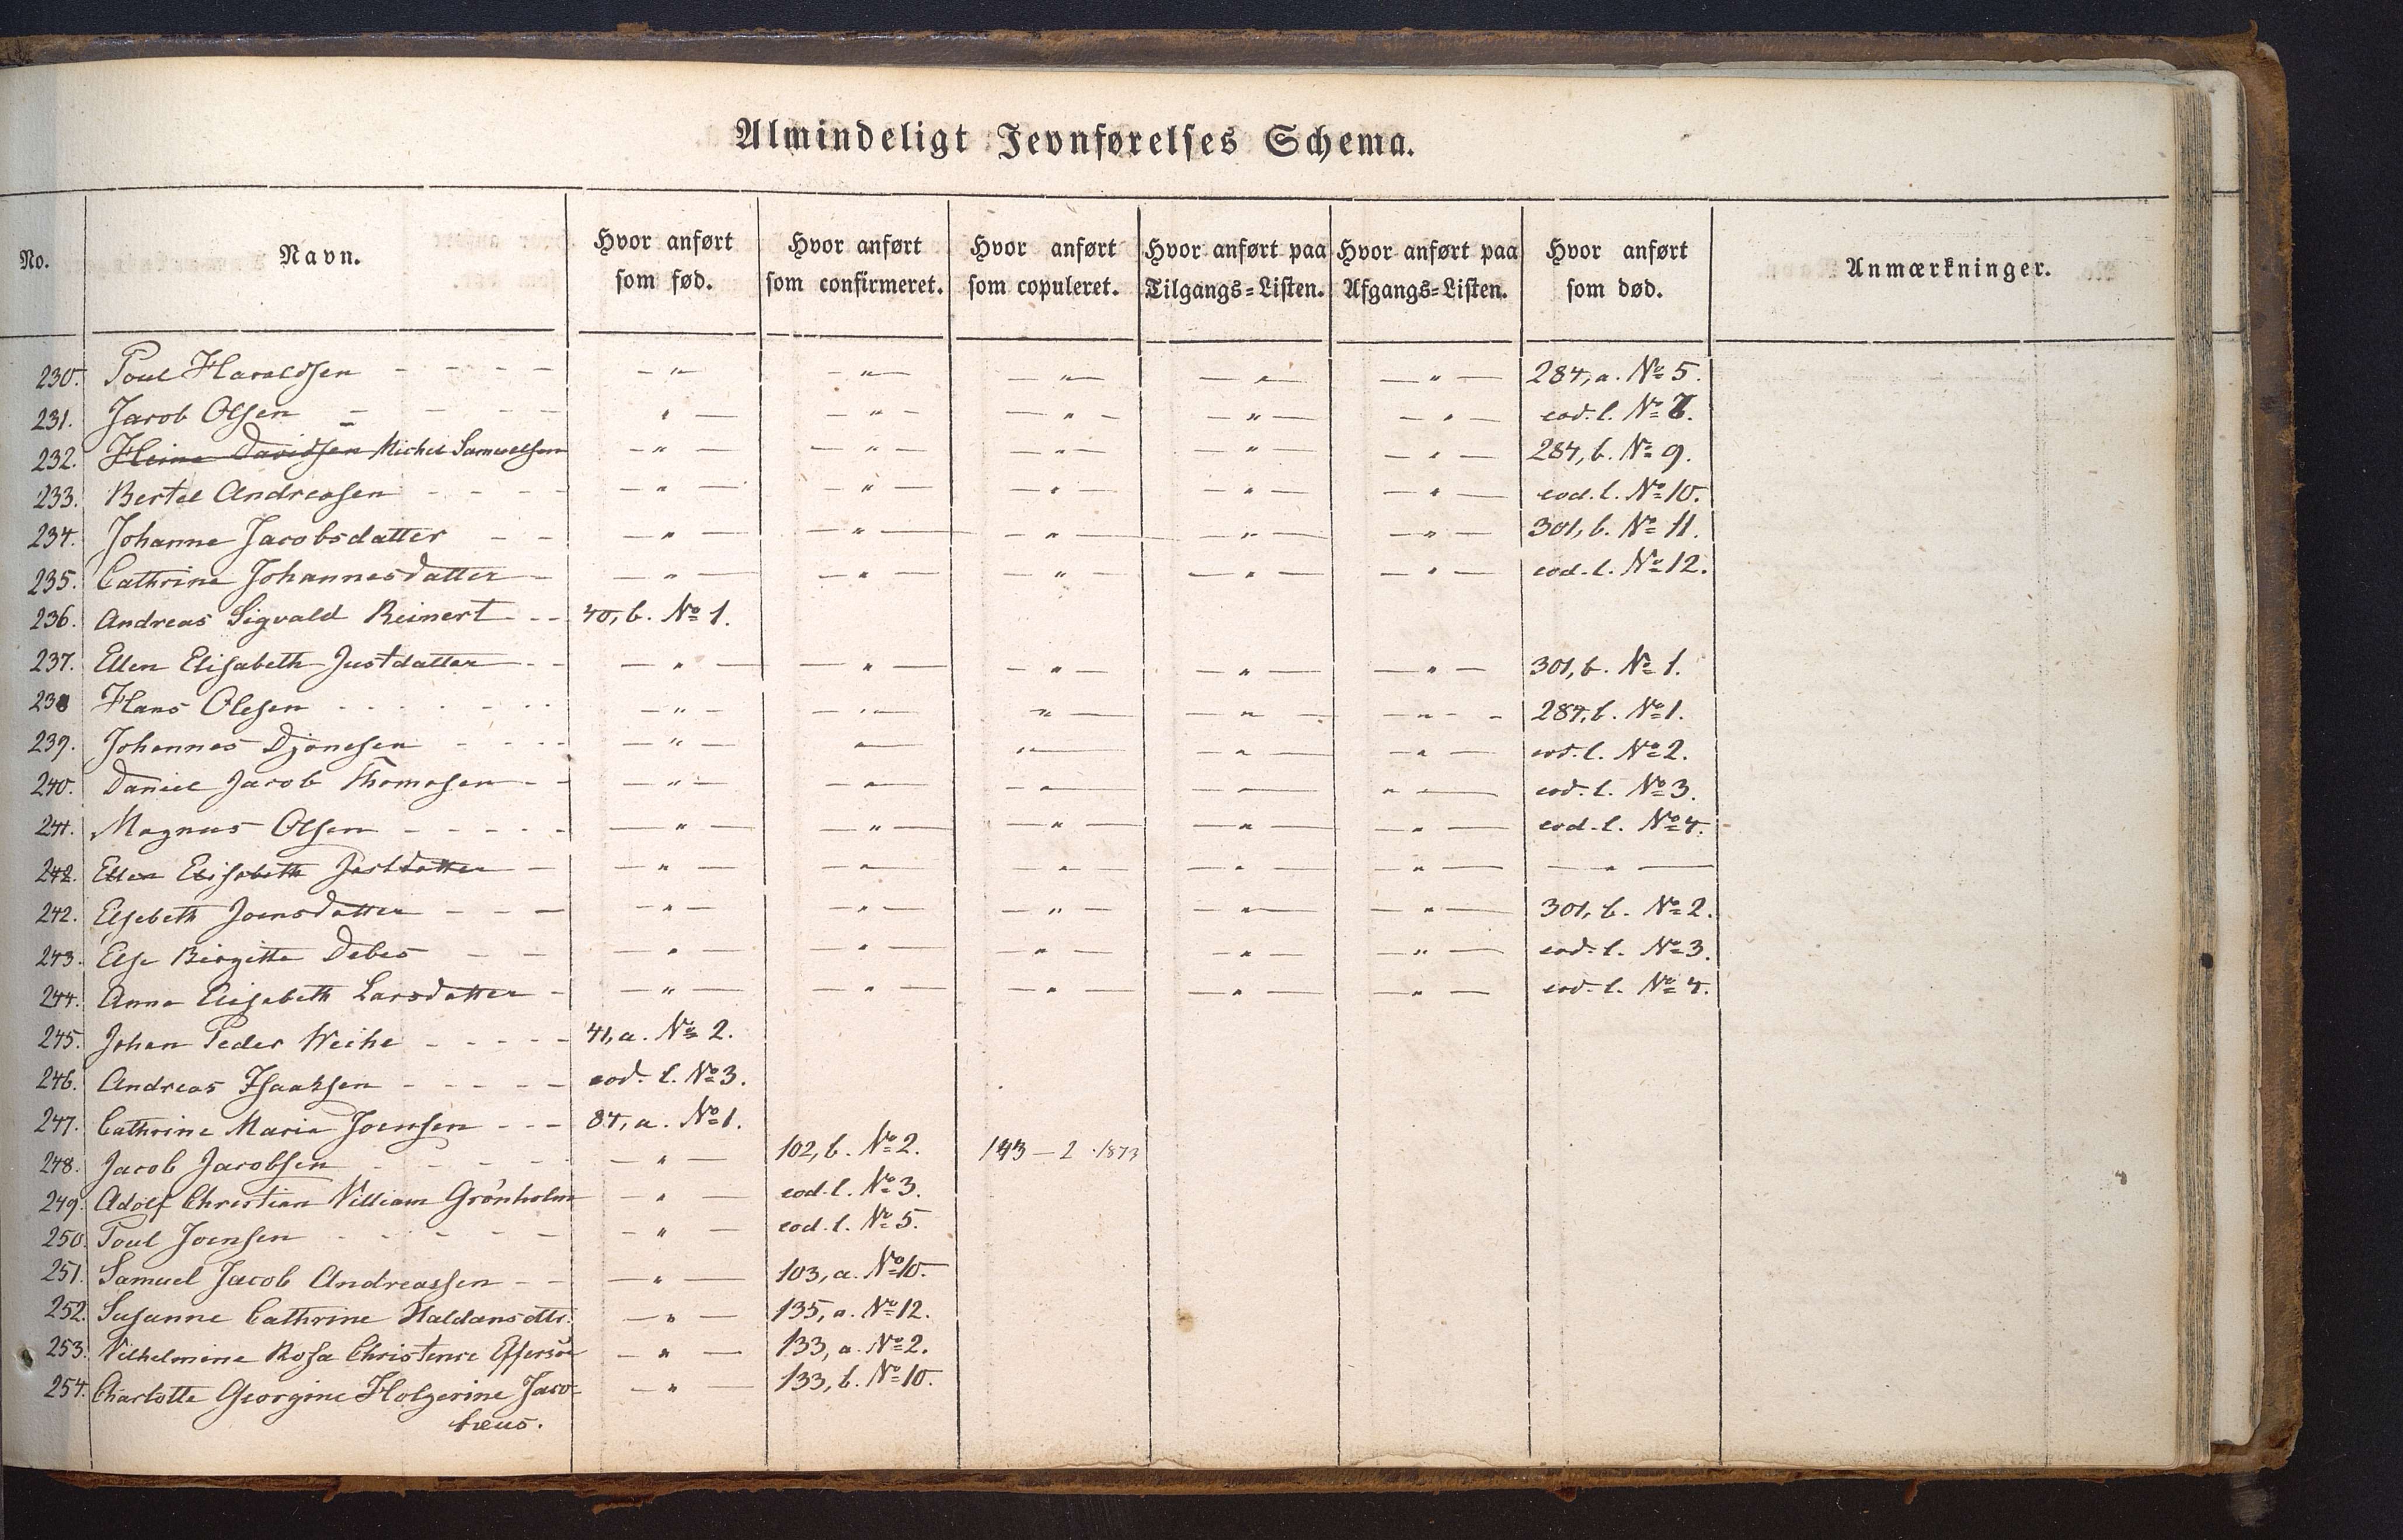 Almindeligt Jevnførelses Schema.
No. Navn. Hvor anført som fød. Hvor anført som confirmeret. Hvor anført som copuleret. Hvor anført paa Tilgangs=Listen. Hvor anført paa Afgangs=Listen. Hvor anført som død. Anmærkninger.
230. Poul Haraldsen - - - - — " — — " — — " — — " — — " — 284, a. No 5.
231. Jacob Olsen - - - - — " — — " — — " — — " — — " — eod. l. No 7.
232. Heine Davidsen Michel Samuelsen — " — — " — — " — — " — — " — 284, b. No 9.
233. Bertel Andreasen - - - - — " — — " — — " — — " — — " — eod. l. No 10.
234. Johanne Jacobsdatter - - — " — — " — — " — — " — — " — 301, b. No 11.
235. Cathrine Johannesdatter - — " — — " — — " — — " — — " — eod. l. No 12.
236. Andreas Sigvald Reinert - - 40, b. No 1.
237. Ellen Elisabeth Justdatter - - — " — — " — — " — — " — — " — 301, b. No 1.
238 Hans Olesen - - - - - — " — — " — — " — — " — — " — 284, b. No 1.
239. Johannes Djonesen - - - - — " — — " — — " — — " — — " — eod. l. No 2.
240. Daniel Jacob Thomasen - - — " — — " — — " — — " — — " — eod. l. No 3.
241. Magnus Olsen - - - - - — " — — " — — " — — " — — " — eod. l. No 4.
242. Ellen Elisabeth Justdatter - — " — — " — — " — — " — — " — — " —
242. Elsebeth Joensdatter - - - — " — — " — — " — — " — — " — 301, b. No 2.
243. Else Birgitte Debes - - — " — — " — — " — — " — — " — eod. l. No 3.
244. Anna Elisabeth Larsdatter - — " — — " — — " — — " — — " — eod. l. No 4.
245. Johan Peder Weihe - - - - - 41, a. No 2.
246. Andreas Isaaksen - - - - - eod. l. No 3.
247. Cathrine Maria Joensen - - - 84, a. No 1.
248. Jacob Jacobsen - - - - - — " — 102, b. No 2. 143 — 2 . 1873
249. Adolf Christian Villiam Grönholm — " — eod. l. No 3.
250. Poul Joensen - - - - - — " — eod. l. No 5.
251. Samuel Jacob Andreassen - - — " — 103, a. No 10.
252. Susanne Cathrine Haldansdttr. — " — 135, a. No 12.
253. Vilhelmine Rosa Christense Effersöe — " — 133, a. No 2.
254. Charlotte Georgine Holgerine Jaco- — " — 133, b. No 10.
bæus.